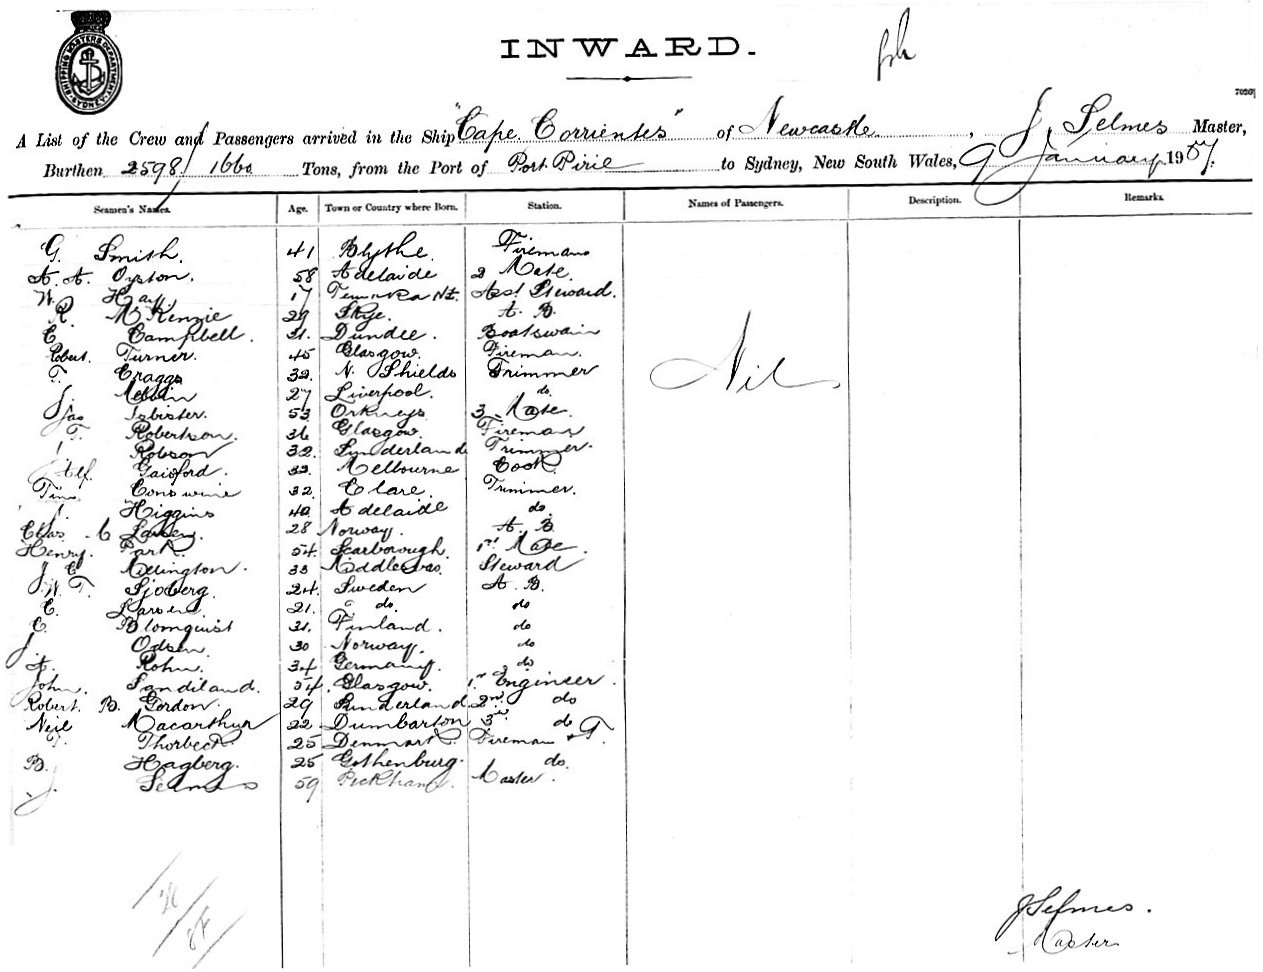 SHIPPING MASTERS DEPARTMENT SYDNEY
INWARD.
7020
A List of the Crew and Passengers arrived in the Ship "Cape Corrientes" of Newcastle, J. Selmes Master,
Burthen 2598/1660 Tons, from the Port of Port Pirie to Sydney, New South Wales, 9 January 1907.
Seamen's Names. Age. Town or Country where Born. Station. Names of Passengers. Description. Remarks.
G. Smith. 41 Blythe Fireman
A. A. Oyston. 58 Adelaide 2 Mate.
W. Hay 17 Temuka NZ. Asst Steward.
R. McKenzie 29 Skye. A. B.
C Campbell. 31. Dundee. Boatswain
Robert. Turner. 45 Glasgow. Fireman.
T. Craggs 32. N. Shields Trimmer
J. Melvin 27 Liverpool. do.
Jas Isbister. 53 Orkneys 3 Mate.
T. Robertson. 36 Glasgow. Fireman
Robson 32. Sunderland Trimmer.
Alf. Gaisford. 33. Melbourne Cook
Tim. Considine 32. Clare. Trimmer.
Higgins 40 Adelaide do.
Chas. C Larsen. 28 Norway. A. B
Henry. Park. 54. Scarborough. 1st Mate.
J. C 33 Middlesbro. Steward
W. T. Sjoberg. 24. Sweden A. B.
C. Larsen. 21. do. do
C. Blomquist 31. Finland. do
J. Olsen. 30 Norway. do
A. Rohn. 34 Germany. do
John. Sandiland. 54. Glasgow. 1st Engineer.
Robert B. Gordon. 29 Sunderland 2nd do
Neil Macarthur 22 Dumbarton 3rd do
T. Thorbeck. 25 Denmark. Fireman & T.
B. Hagberg. 25 Gothenburg. do.
J. Selmes 59 Peckham. Master.
Nil
J Selmes.
Master